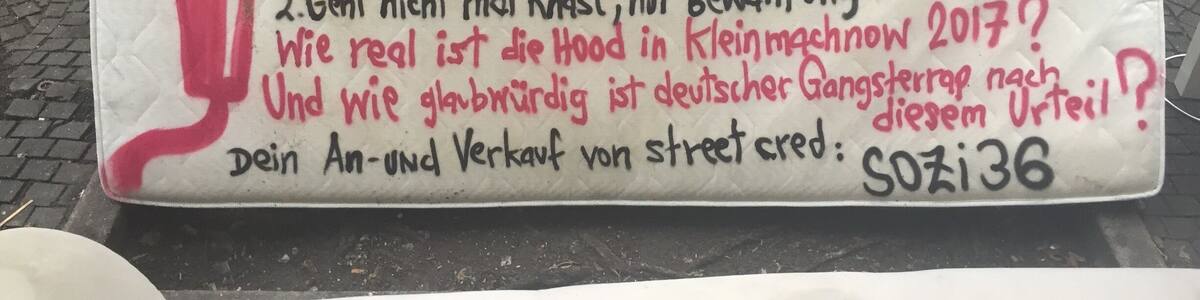 2. Geht nicht mal Knast, nur Bewährung
Wie real ist die Hood in Kleinmachnow 2017?
Und wie glaubwürdig ist deutscher Gangsterrap nach diesem Urteil?
Dein An-und Verkauf von street cred: SOZi36